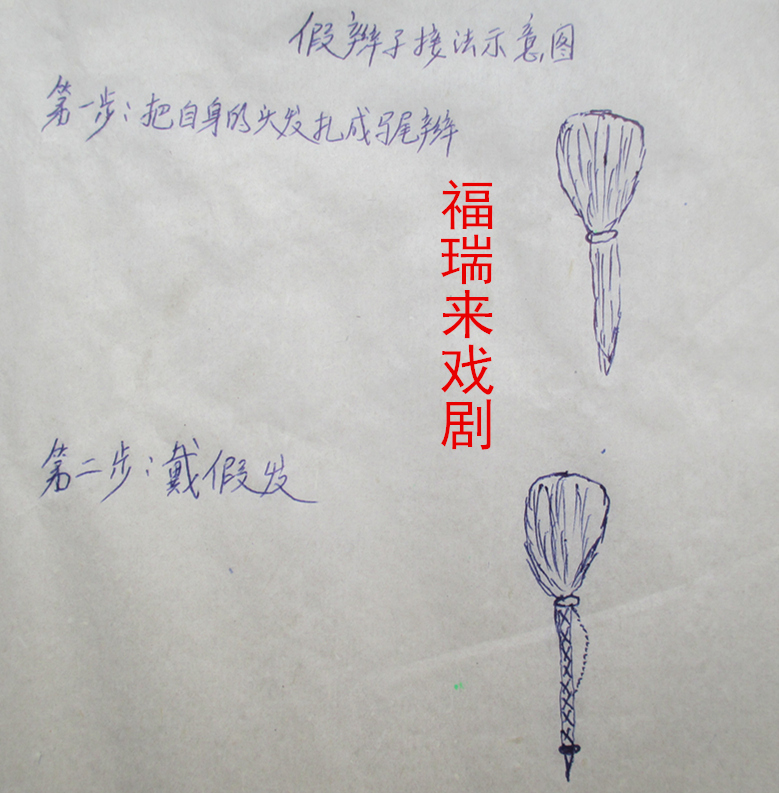 假辫子接法示意图
第一步：把自身的头发扎成马尾辫
福瑞来戏剧
第二步：戴假发